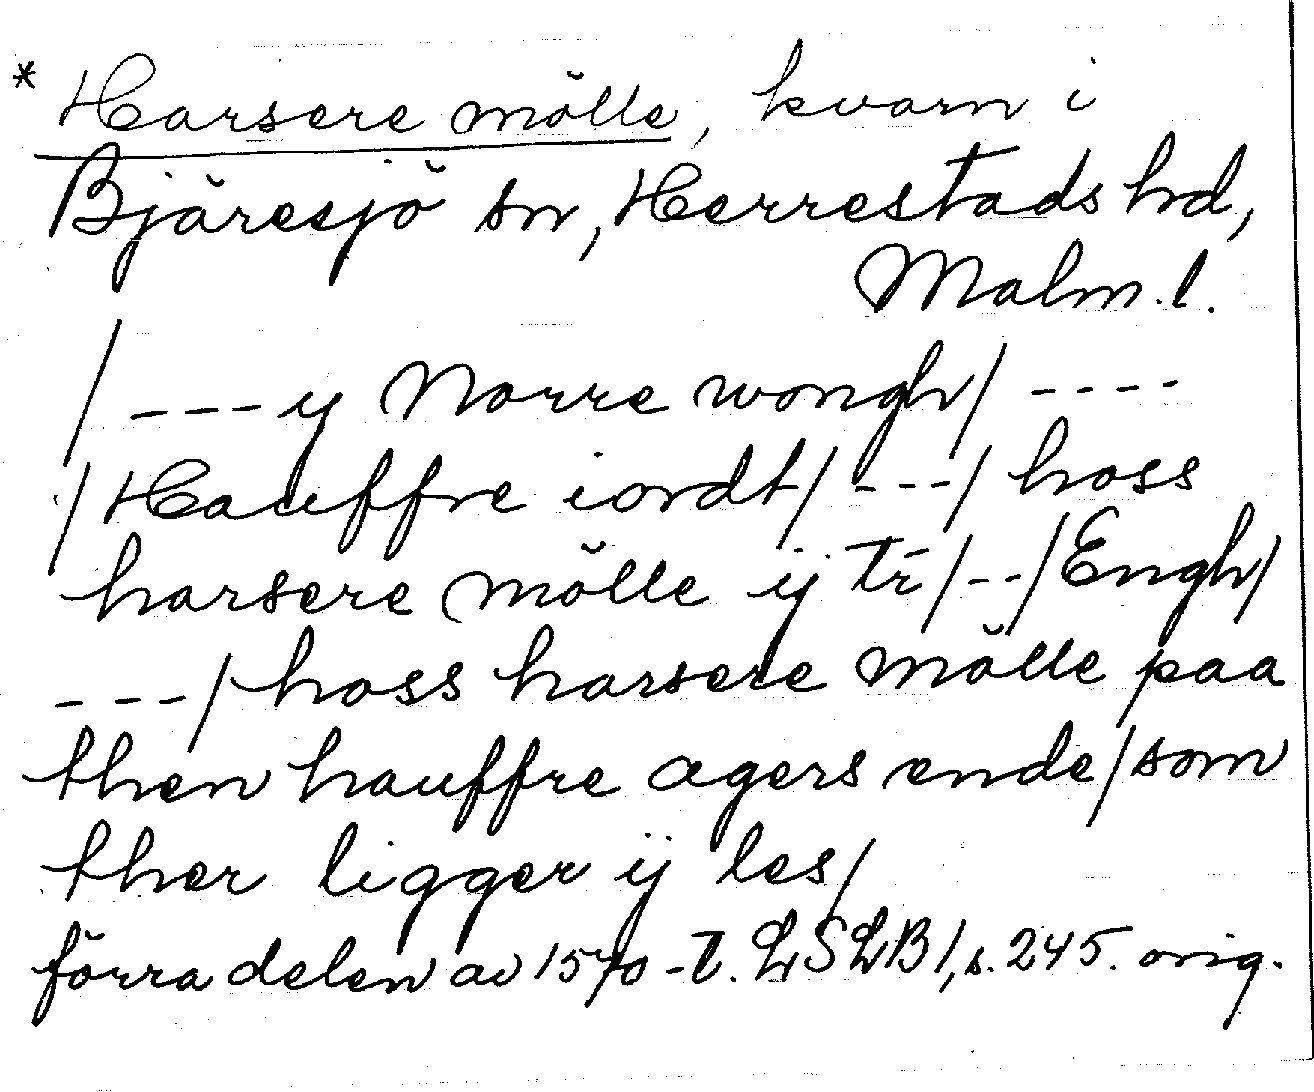 * Harsere mölle, kvarn i
Bjäresjö sn, Herrestads hd,
Malm. l.
/ ---- ij Norre wongh/ ----
/Hauffre iordt/ ---/ hoss
harsere mölle ij tr̄/--/Engh/
---/ hoss harsere mölle paa
then hauffre agers ende/som
ther ligger ij les/
förra delen av 1570-t. LSLB 1, s. 245. orig.